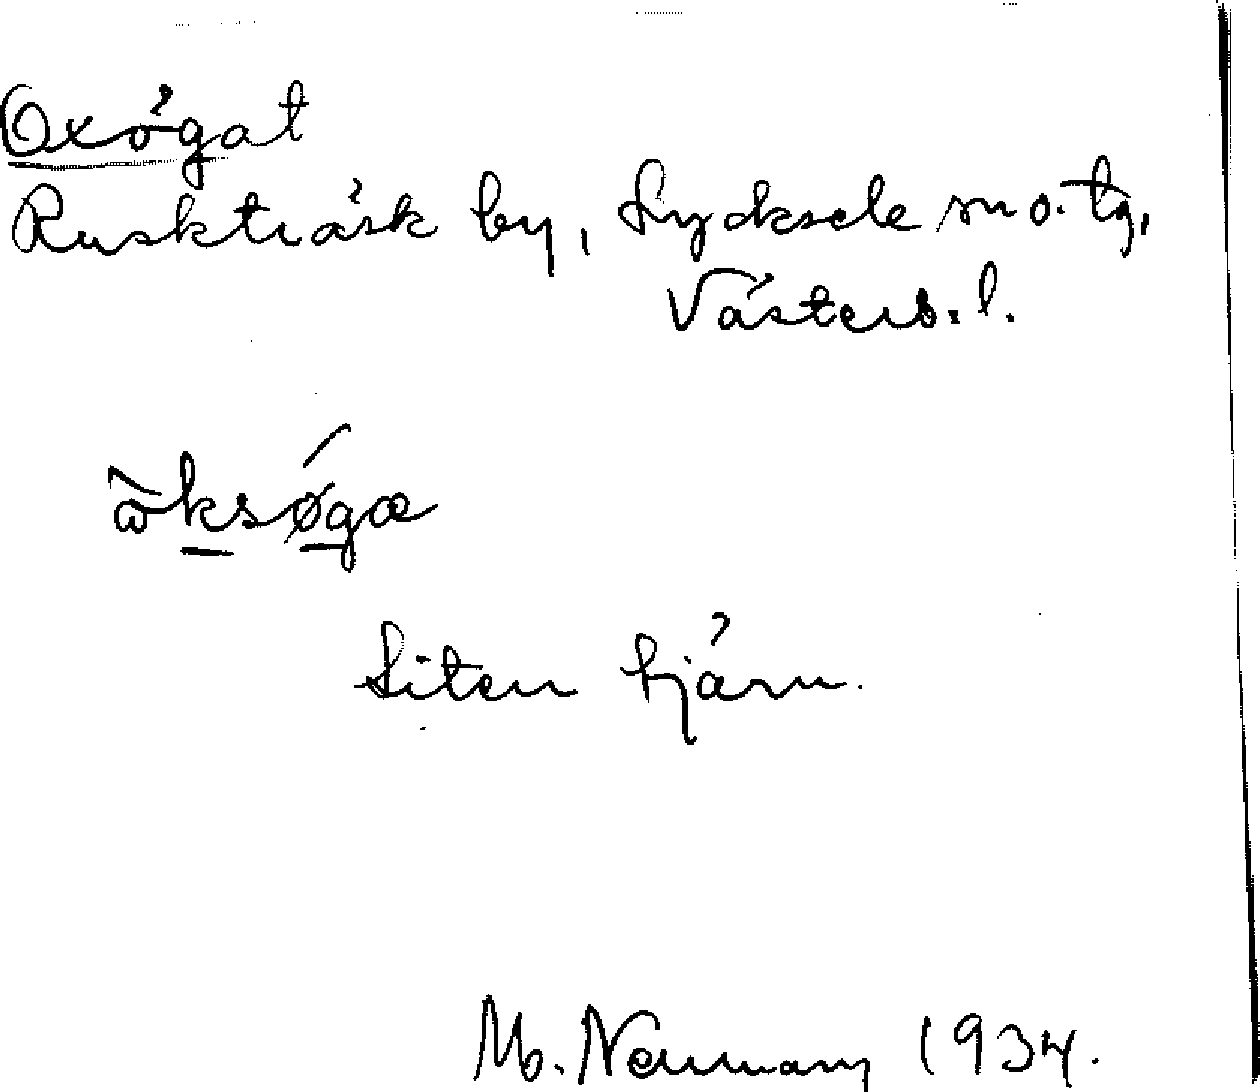 Oxögat
Ruskträsk by, Lycksele sn o. tg,
Västerb. l.
öksøgæ
Liten tjärn.
M. Neumann 1934.